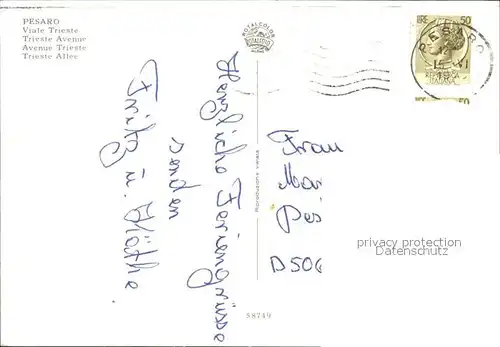 PESARO
Viale Trieste
Trieste Avenue
Avenue Trieste
Trieste Allee
ROTALCOLOR
LIRE 50
PESARO
REPUBBLICA
ITALIANA
50
Herzliche Feriengrüsse
senden
Fritz u. Käthe.
Riproduzione vietata
Frau
Mar
Pes
D 506
privacy protection
Datenschutz
58749